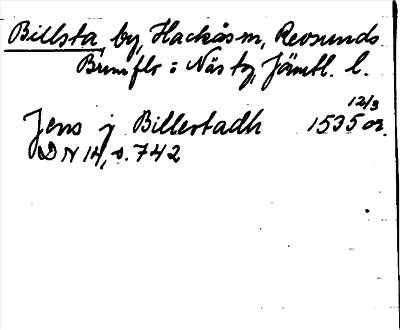 Billsta, by, Hackås sn, Revsunds
Brunflo o Näs tg, Jämtl. l.
12/3
Jens j Billestadh 1535 or.
DN 14, s. 742